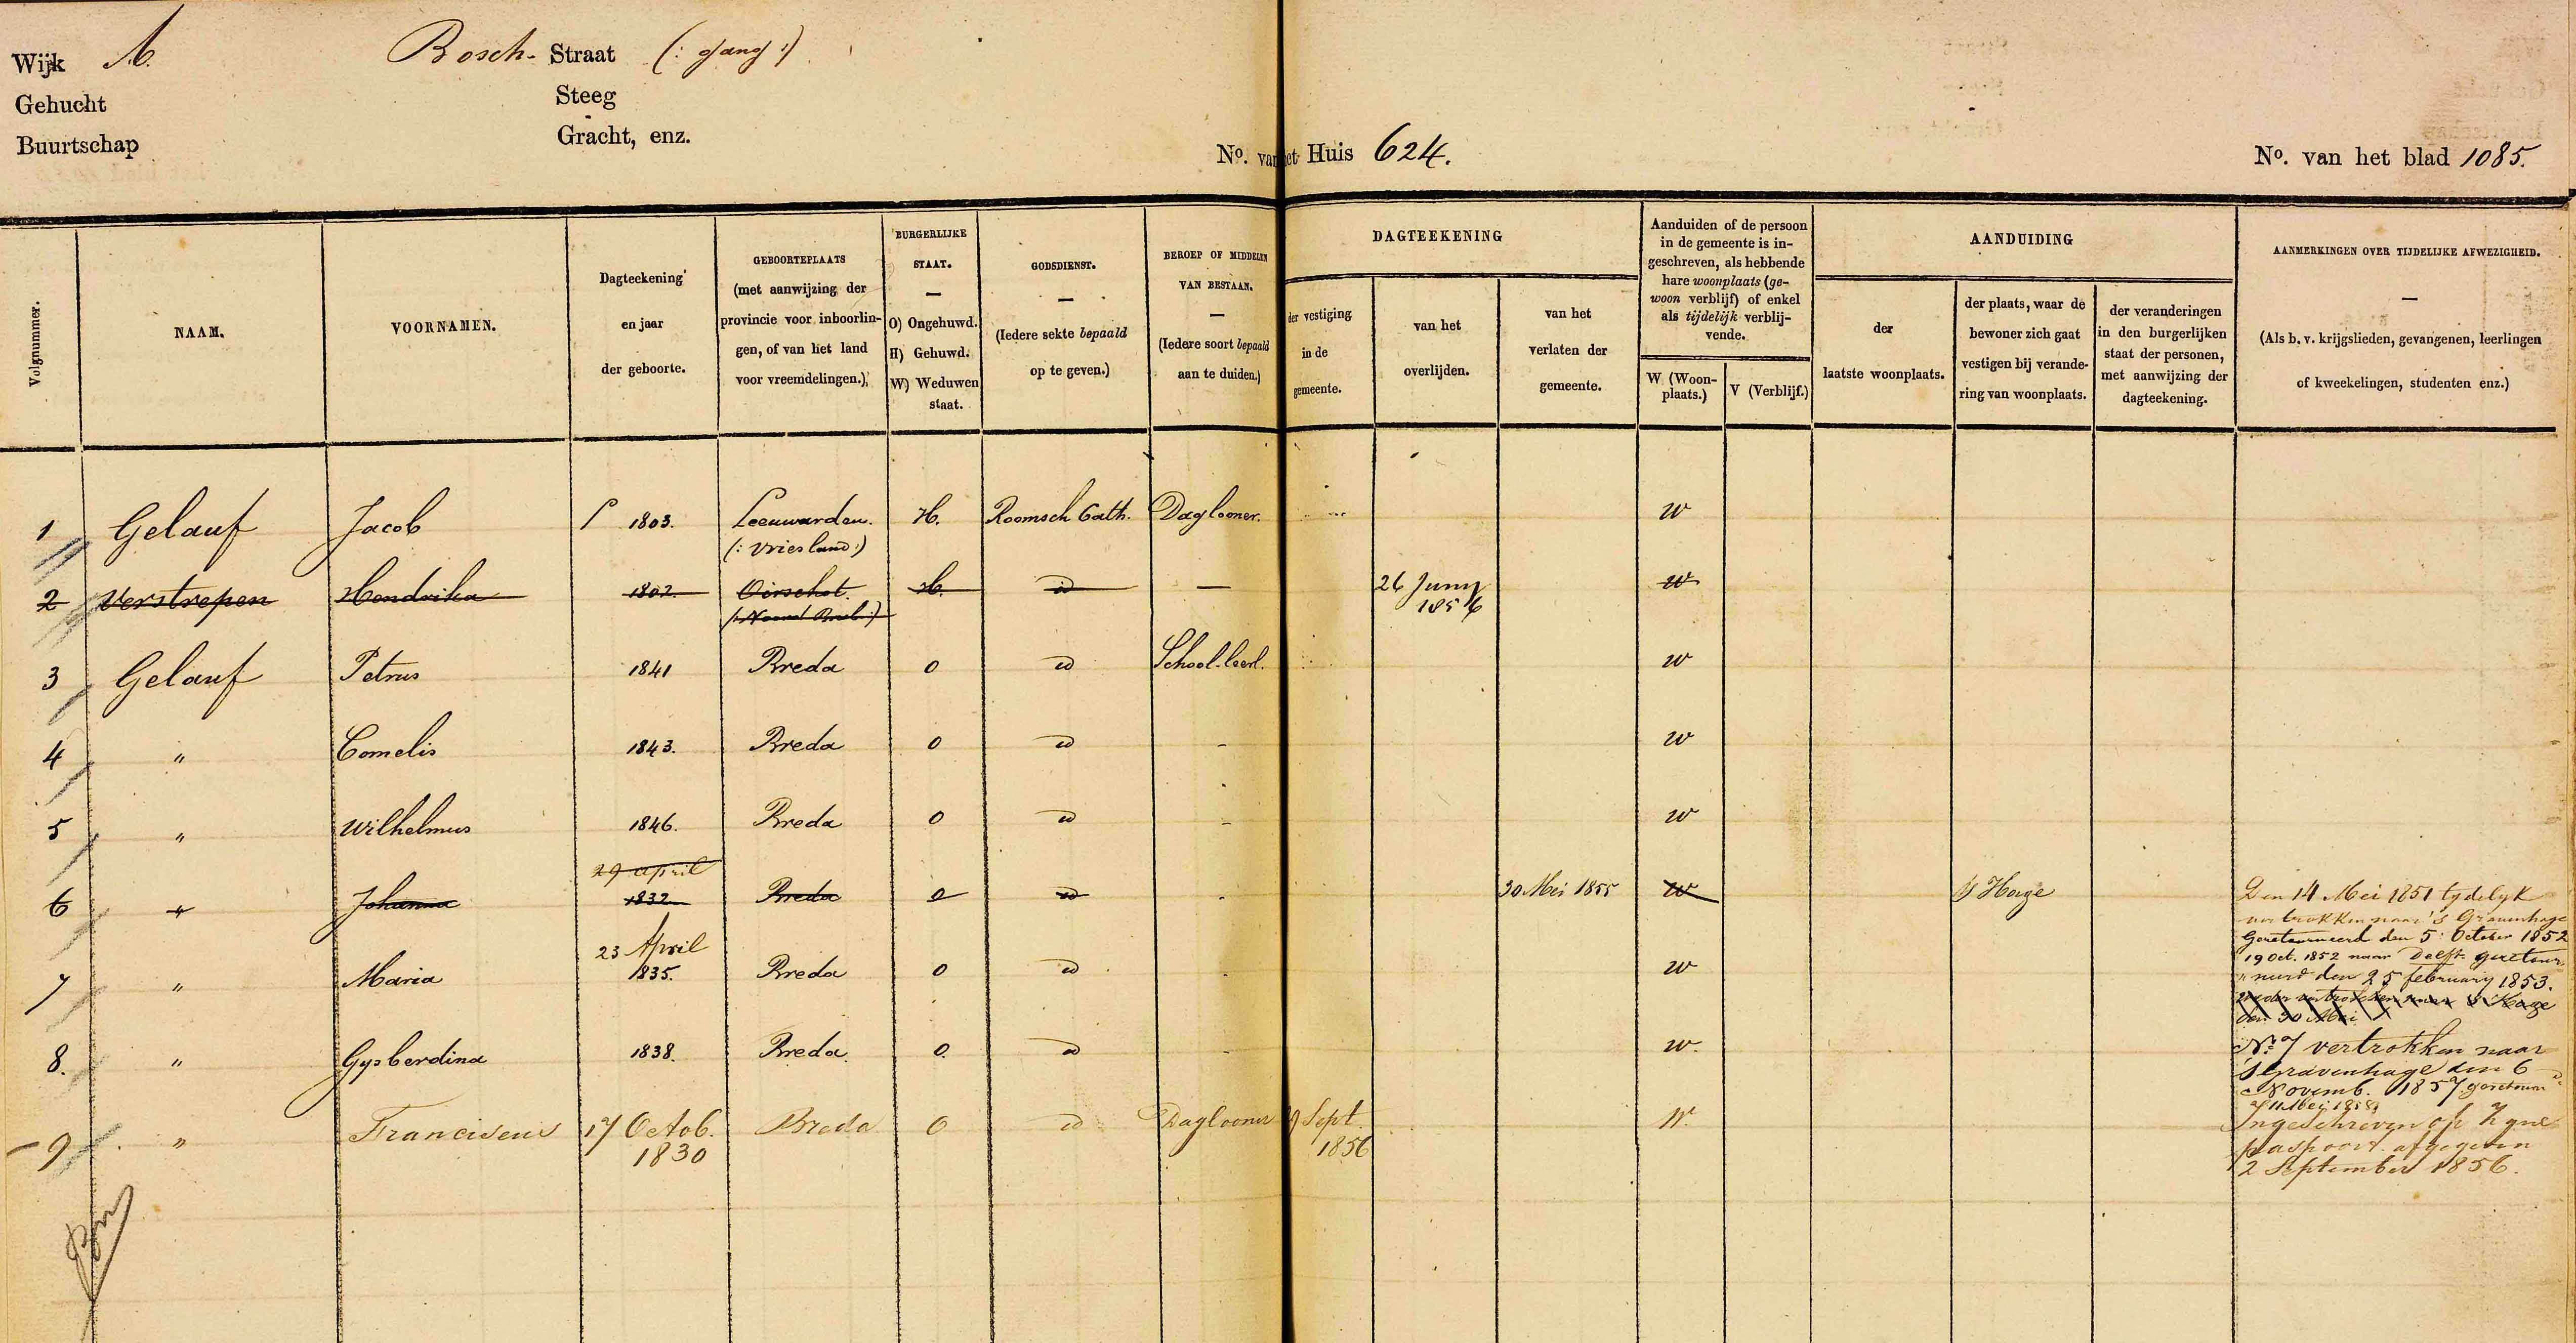 Wijk A. Bosch- Straat (: gang :)
Gehucht Steeg
Buurtschap Gracht, enz.
No. van het Huis 624. No. van het blad 1085.
Volgnummer.
NAAM.
VOORNAMEN.
Dagteekening
en jaar
der geboorte.
GEBOORTEPLAATS
(met aanwijzing der
provincie voor inboorlin-
gen, of van het land
voor vreemdelingen.)
BURGERLIJKE
STAAT.
—
O) Ongehuwd.
H) Gehuwd.
W) Weduwen
staat.
GODSDIENST.
—
(Iedere sekte bepaald
op te geven.)
BEROEP OF MIDDELEN
VAN BESTAAN.
—
(Iedere soort bepaald
aan te duiden.)
DAGTEEKENING
der vestiging
in de
gemeente.
van het
overlijden.
van het
verlaten der
gemeente.
Aanduiden of de persoon
in de gemeente is in-
geschreven, als hebbende
hare woonplaats (ge-
woon verblijf) of enkel
als tijdelijk verblij-
vende.
W (Woon-
plaats.)
V (Verblijf.)
AANDUIDING
der
laatste woonplaats.
der plaats, waar de
bewoner zich gaat
vestigen bij verande-
ring van woonplaats.
der veranderingen
in den burgerlijken
staat der personen,
met aanwijzing der
dagteekening.
AANMERKINGEN OVER TIJDELIJKE AFWEZIGHEID.
—
(Als b. v. krijgslieden, gevangenen, leerlingen
of kweekelingen, studenten enz.)
1 Gelauf Jacob 1803. Leeuwarden. H. Roomsch Cath. Daglooner. W
(: Vriesland :)
2 Verstrepen Hendrika 1802. Oirschot. H. id — 26 Juny W
(: Noord Brab. :) 1856
3 Gelauf Petrus 1841 Breda O id School-leerl. W
4 " Cornelis 1843. Breda O id - W
5 " Wilhelmus 1846. Breda O id - W
29 april
6 " Johanna 1832 Breda O id - 30 Mei 1855 W s' Hage
23 April
7 " Maria 1835. Breda O id W
8. " Gysberdina 1838. Breda. O. id - W.
9 " Franciscus 17 Octob. Breda O id Daglooner 9 Sept. W.
1830 1856
Den 14 Mei 1851 tydelyk
vertrokken naar 's Gravenhage
Geretourneerd den 5 October 1852
19 Oct. 1852 naar Delft geretour
" neerd den 25 february 1853.
weder vertrokken naar s' Hage
den 30 Mei
No. 7 vertrokken naar
's Gravenhage den 6
Novemb. 1857 geretourn
11 Mei 1858
Ingeschreven op zyne
paspoort afgegeven
2 September 1856.